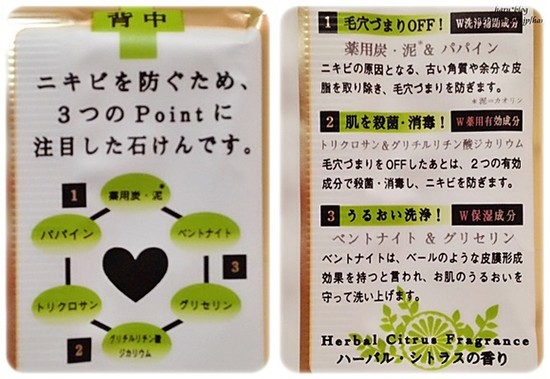 背中
ニキビを防ぐため、
３つのPointに
注目した石けんです。
1
薬用炭・泥*
パパイン
ベントナイト
3
トリクロサン
グリセリン
2
グリチルリチン酸
ジカリウム
1 毛穴づまりOFF！ W洗浄補助成分
薬用炭・泥*& パパイン
ニキビの原因となる、古い角質や余分な皮
脂を取り除き、毛穴づまりを防ぎます。
*泥=カオリン
2 肌を殺菌・消毒！ W薬用有効成分
トリクロサン&グリチルリチン酸ジカリウム
毛穴づまりをOFFしたあとは、２つの有効
成分で殺菌・消毒し、ニキビを防ぎます。
3 うるおい洗浄！ W保湿成分
ベントナイト & グリセリン
ベントナイトは、ベールのような皮膜形成
効果を持つと言われ、お肌のうるおいを
守って洗い上げます。
Herbal Citrus Fragrance
ハーバル・シトラスの香り